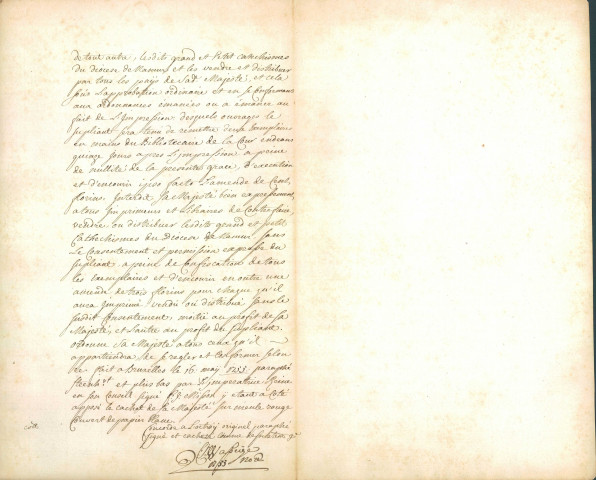 de tout autre, lesdits grand et Petit catechismes
du diocese de Namur et les vendre et distribuer
par tous les païs de Sad.e Majesté, et cela
L'approbation ordinaire et en se Conformant
aux ordonnances émanées ou a émaner au
fait de L'Impression desquels ouvrages le
supliant sera tenu de remettre deux Exemplaires
en mains du Bibliotecaire de la Cour endeans
quinze Jours apres L'Impression a peine
de nullité de la presente grace, d'execution
et d'encourir ipso facto L'amende de Cent
florins. Interdit sa Majesté bien expressement,
a tous Imprimeurs et Libraires de Contrefaire
vendre ou distribuer lesdits grand et petit
Catechismes du diocese de Namur sans
Le Consentement et permission expresse du
supliant, a peine de Confiscation de tous
les exemplaires et d'encourir en outre une
amende de trois florins pour chaque qu'il
aura Imprimé vendu ou distribué sans le
susdit Consentement, moitié au profit de sa
Majesté, et L'autre au profit du supliant.
ordonne sa Majesté a tous ceux qu'il
appartiendra de se regler et Conformer selon
ce fait a Bruxelles le 16 may 1755. paraphé
et plus bas par L'imperatrice Reine
en son Conseil signé y etant a Coté
apposé le cachet de sa Majesté sur rouge
Couvert de papier blanc.
Concorde a L'octroij originel paraphé
signé et cacheté comme dessus